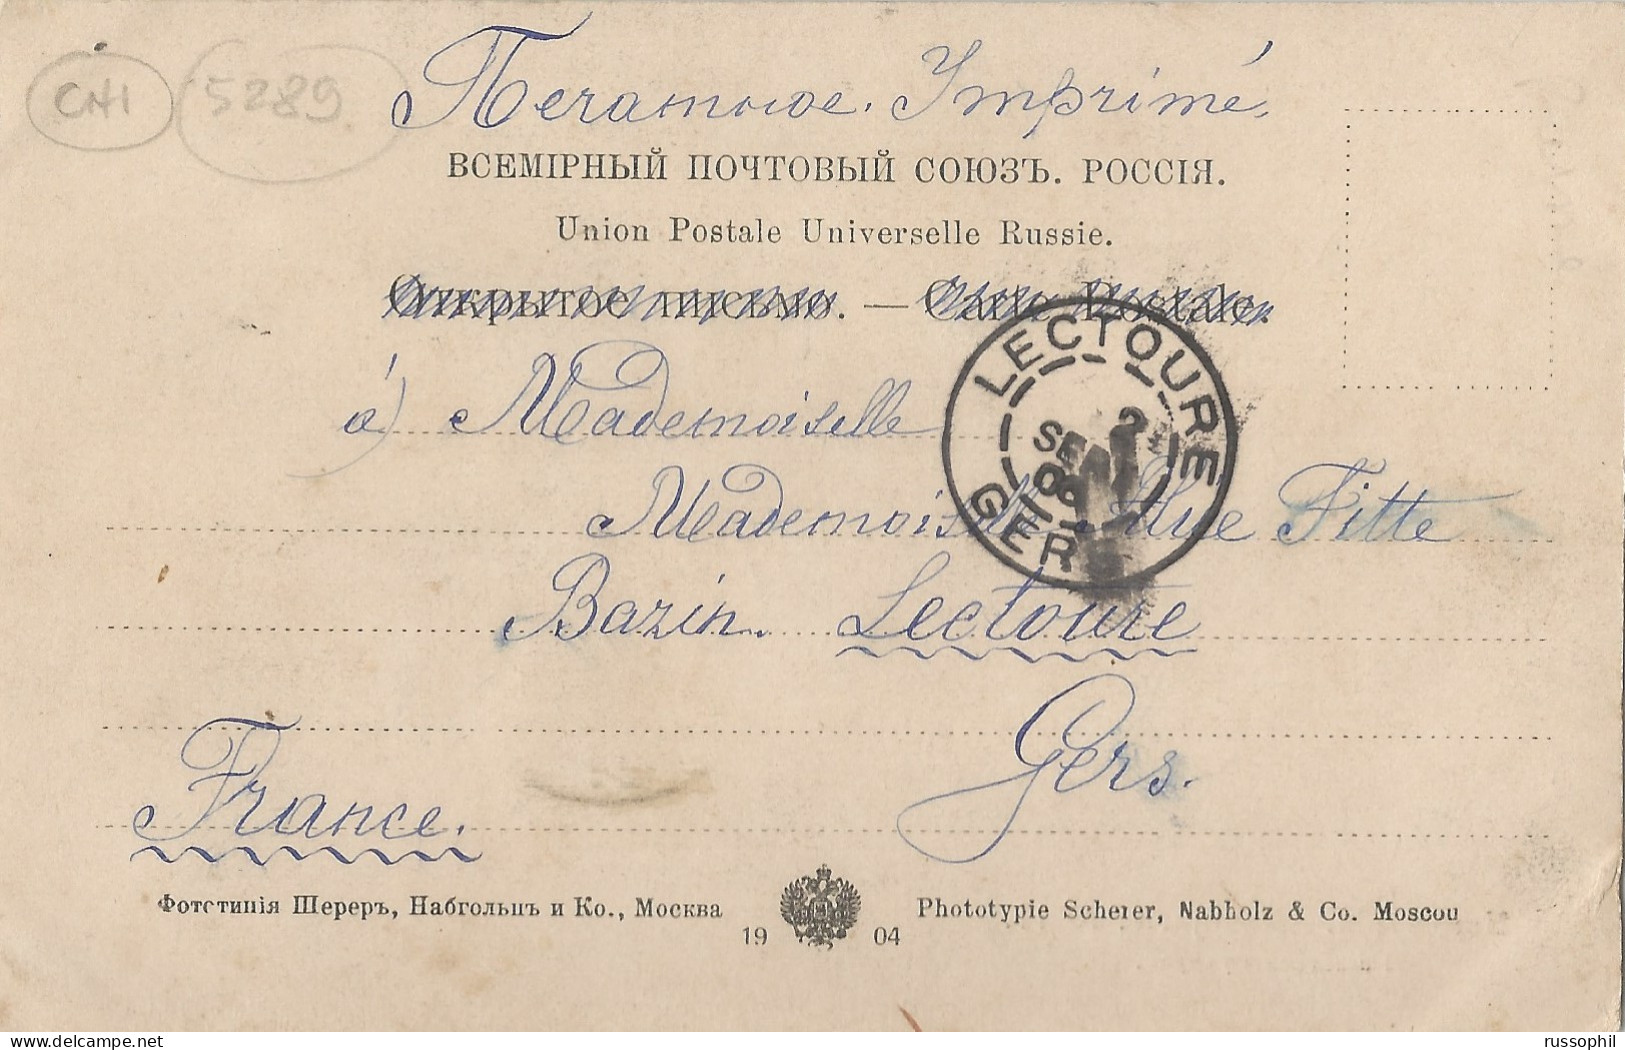 СН1 5289
Печатное. Imprimé.
ВСЕМІРНЫЙ ПОЧТОВЫЙ СОЮЗЪ. РОССІЯ.
Union Postale Universelle Russie.
Открытое письмо. — Carte Postale.
LECTOURE
à) Mademoiselle
2
SEPT
06
GERS
Mademoiselle Fitte
Bazin. Lectoure
Gers.
France.
Фототипія Шереръ, Набгольцъ и Ко., Москва
19 04
Phototypie Scherer, Nabholz & Co. Moscou
russophil www.delcampe.net